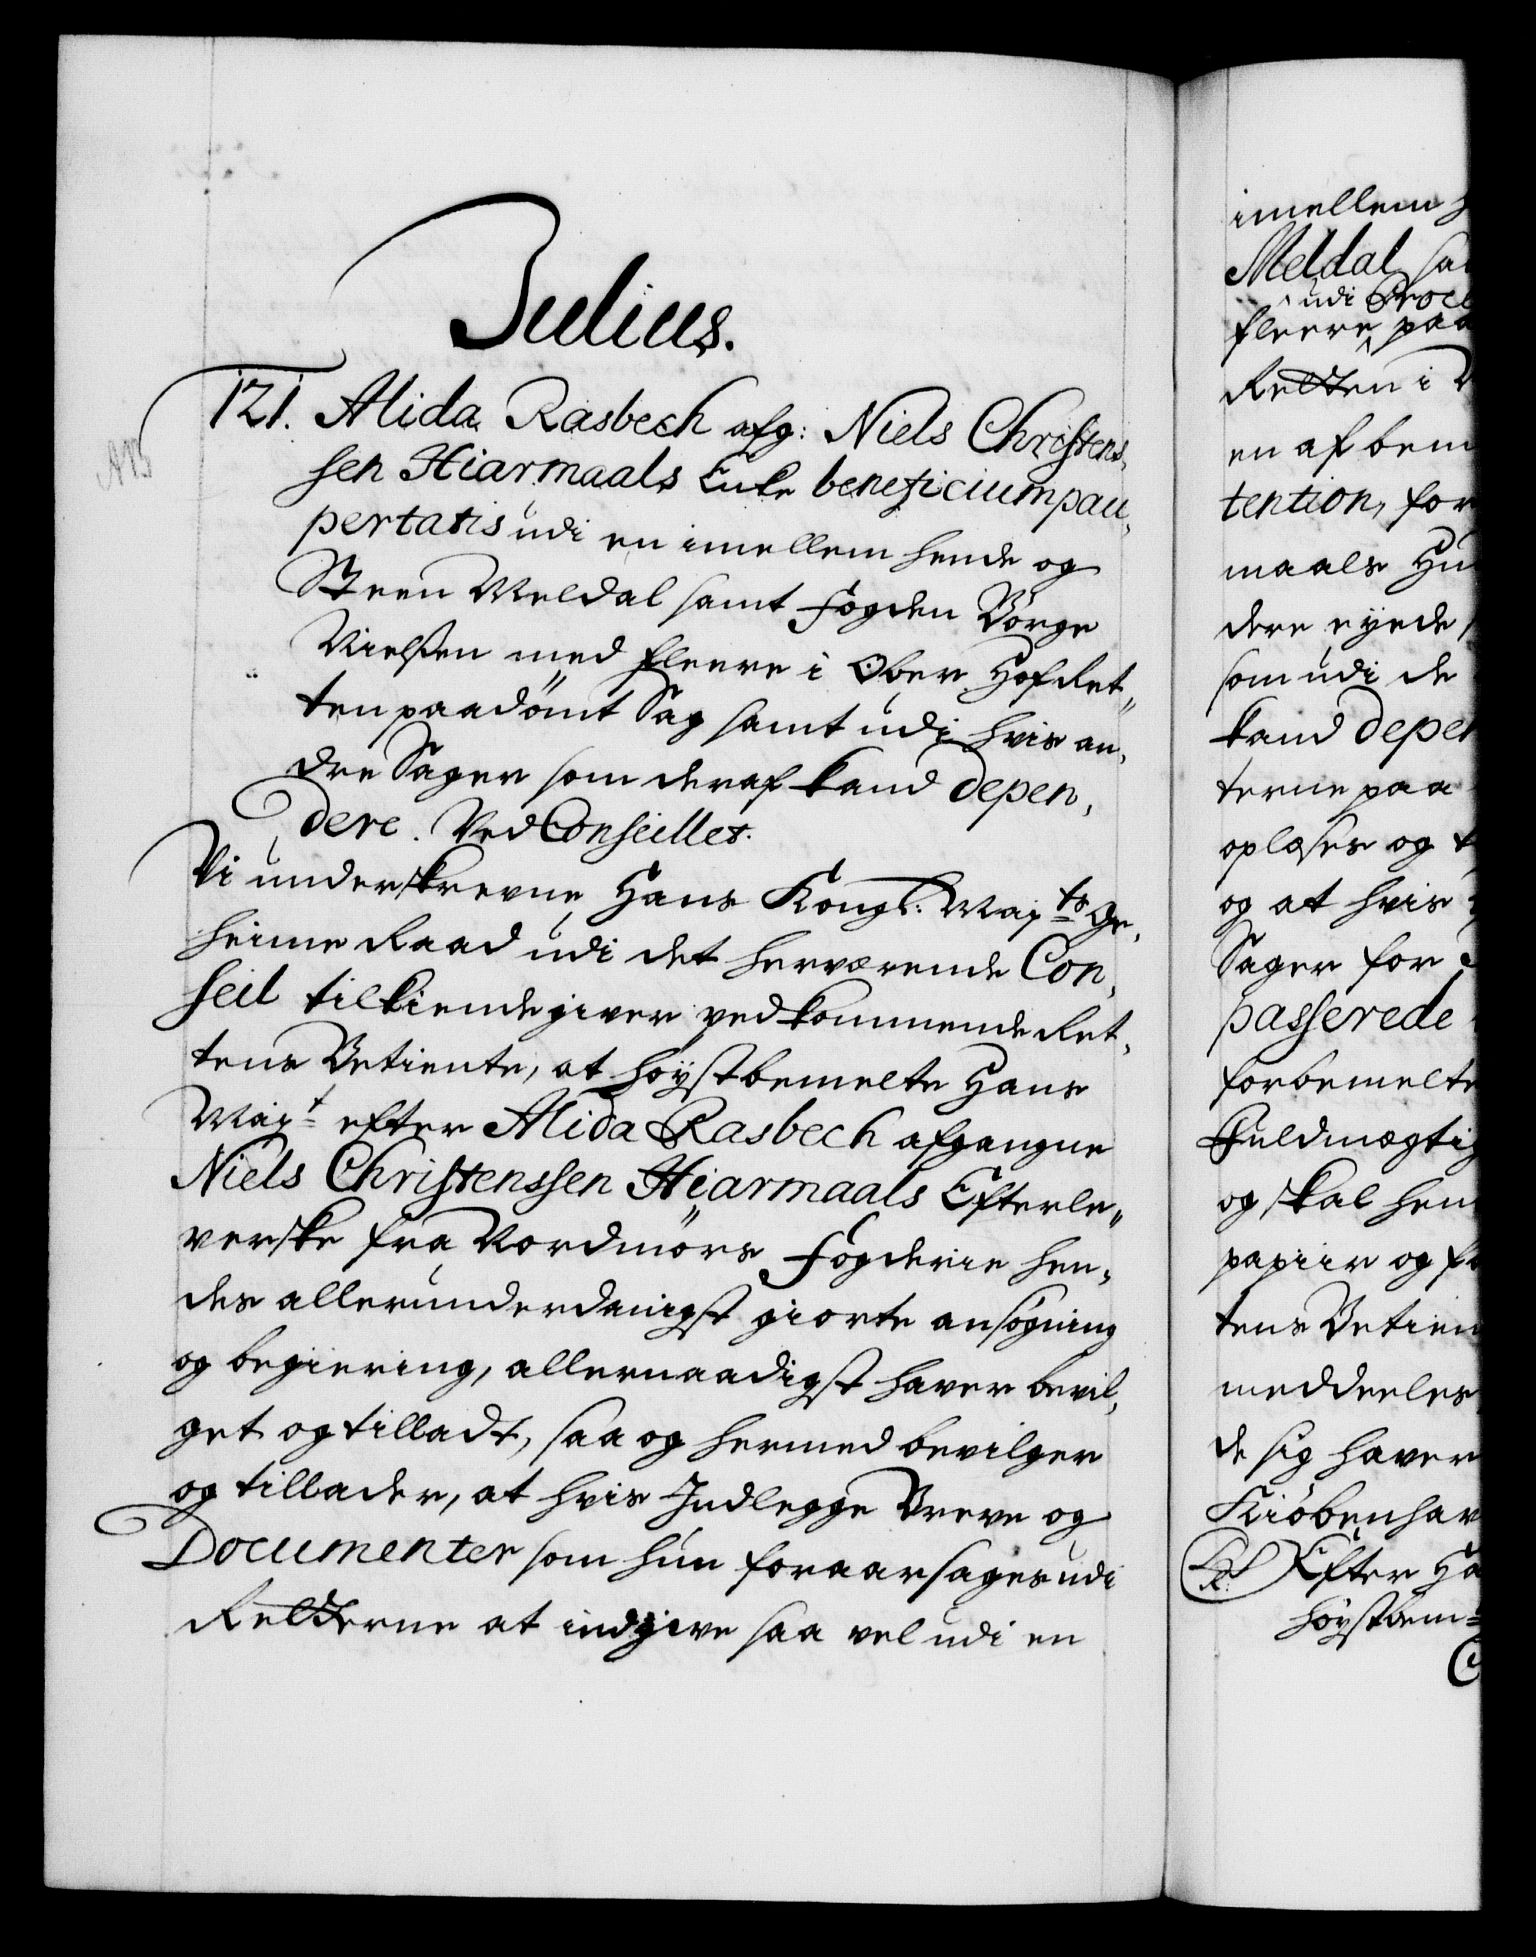 Julius.
121. Alida Rasbech afg: Niels Christens,
sen Hiarmaals Enke beneficium pau,
pertatis udi en imellem hende og
Steen Meldal samt Fogden Børge
Nielssen med fleere i Ober Hof Ret„
ten paadømt Sag samt udi hvis an,
dre Sager som deraf kand depen,
dere. Ved Conseillet.
NB
Vi underskrevne Hans Kongl: Majts Ge,
heime Raad udi det herværende Con,
seil tilkiendegiver vedkommende Ret,
tens Betiente, at høystbemelte Hans
Majt efter Alida Rasbech afgangne
Niels Christenssen Hiarmaals Efterle„
verske fra Nordmørs Fogderie hen,
des allerunderdanigst giorte ansøgning
og begiering, allernaadigst haver bevil,
get og tilladt, saa og hermed bevilger
og tillader, at hvis Indlegge Breve og
Documenter som hun foraarsages udi
Retterne at indgive saa vel udi en
imellem
Meldal
udi
fleere paa
Retten i
en af bem
tention, for
maals
dere eyede
som udi de
kand depen
terne paa
oplæses og
og at hvis
Sager for
passerede
forbemelte
Fuldmægtig
og skal hen
papiir og
tens Betien
meddeeles
de sig haver
Kiøbenhav
Efter Ha
høystbem